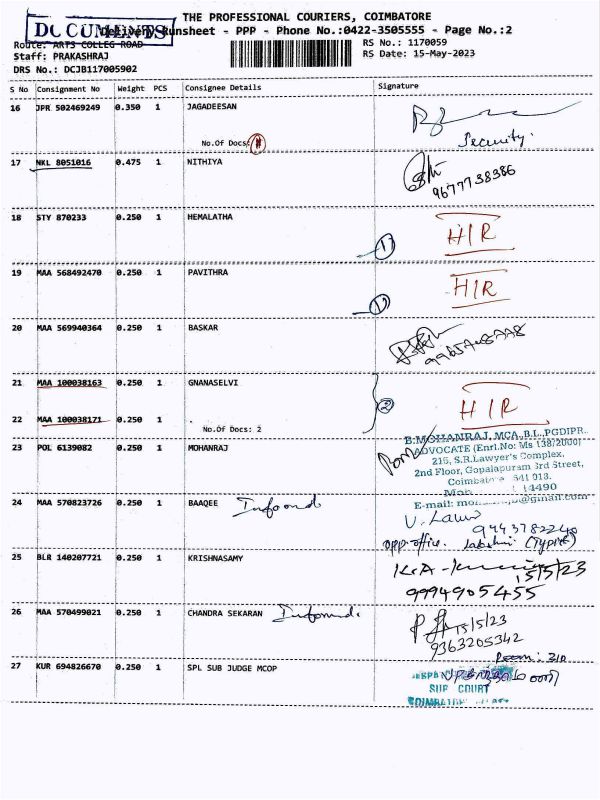 THE PROFESSIONAL COURIERS, COIMBATORE
DOCUMENTS
Delivery Runsheet - PPP - Phone No.:0422-3505555 - Page No.:2
Route: ARTS COLLEG ROAD
RS No.: 1170059
Staff: PRAKASHRAJ
RS Date: 15-May-2023
DRS No.: DCJB117005902
S No Consignment No Weight PCS Consignee Details Signature
16 JPR 502469249 0.350 1 JAGADEESAN
No.Of Docs:
Security.
17 NKL 8051016 0.475 1 NITHIYA
9677738386
18 STY 870233 0.250 1 HEMALATHA
H/R
19 MAA 568492470 0.250 1 PAVITHRA
H/R
20 MAA 569940364 0.250 1 BASKAR
21 MAA 100038163 0.250 1 GNANASELVI
2
H/R
22 MAA 100038171 0.250 1
No.Of Docs: 2
23 POL 6139082 0.250 1 MOHANRAJ
B.MOHANRAJ, MCA.,B.L.,PGDIPR.,
ADVOCATE (Enrl.No: Ms 138/2000)
215, S.R.Lawyer's Complex,
2nd Floor, Gopalapuram 3rd Street,
Coimbatore 641 018.
14490
E-mail: @gmail.com
24 MAA 570823726 0.250 1 BAAQEE
V. Laws
9443782240
opp-office. Lakshmi (Typist)
25 BLR 140207721 0.250 1 KRISHNASAMY
15/5/23
9994905455
26 MAA 570499021 0.250 1 CHANDRA SEKARAN
15/5/23
9363205342
Room: 310
27 KUR 694826670 0.250 1 SPL SUB JUDGE MCOP
SUB COURT